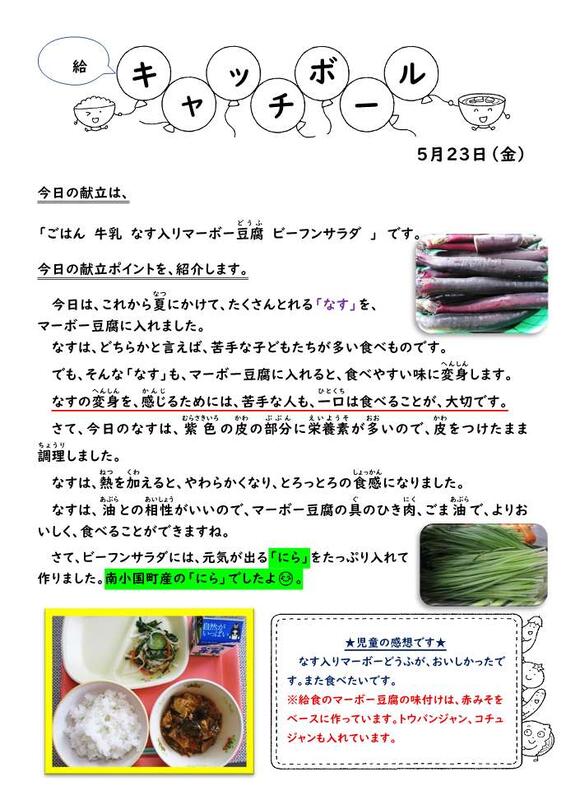 給
キャッチボール
5月23日(金)
今日の献立は、
「ごはん 牛乳 なす入りマーボー豆腐 ビーフンサラダ 」 です。
今日の献立ポイントを、紹介します。
今日は、これから夏にかけて、たくさんとれる「なす」を、
マーボー豆腐に入れました。
なすは、どちらかと言えば、苦手な子どもたちが多い食べものです。
でも、そんな「なす」も、マーボー豆腐に入れると、食べやすい味に変身します。
なすの変身を、感じるためには、苦手な人も、一口は食べることが、大切です。
さて、今日のなすは、紫色の皮の部分に栄養素が多いので、皮をつけたまま
調理しました。
なすは、熱を加えると、やわらかくなり、とろっとろの食感になりました。
なすは、油との相性がいいので、マーボー豆腐の具のひき肉、ごま油で、よりお
いしく、食べることができますね。
さて、ビーフンサラダには、元気が出る「にら」をたっぷり入れて
作りました。南小国町産の「にら」でしたよ😊。
自然が
いっぱい。
★児童の感想です★
なす入りマーボーどうふが、おいしかったで
す。また食べたいです。
※給食のマーボー豆腐の味付けは、赤みそを
ベースに作っています。トウバンジャン、コチュ
ジャンも入れています。